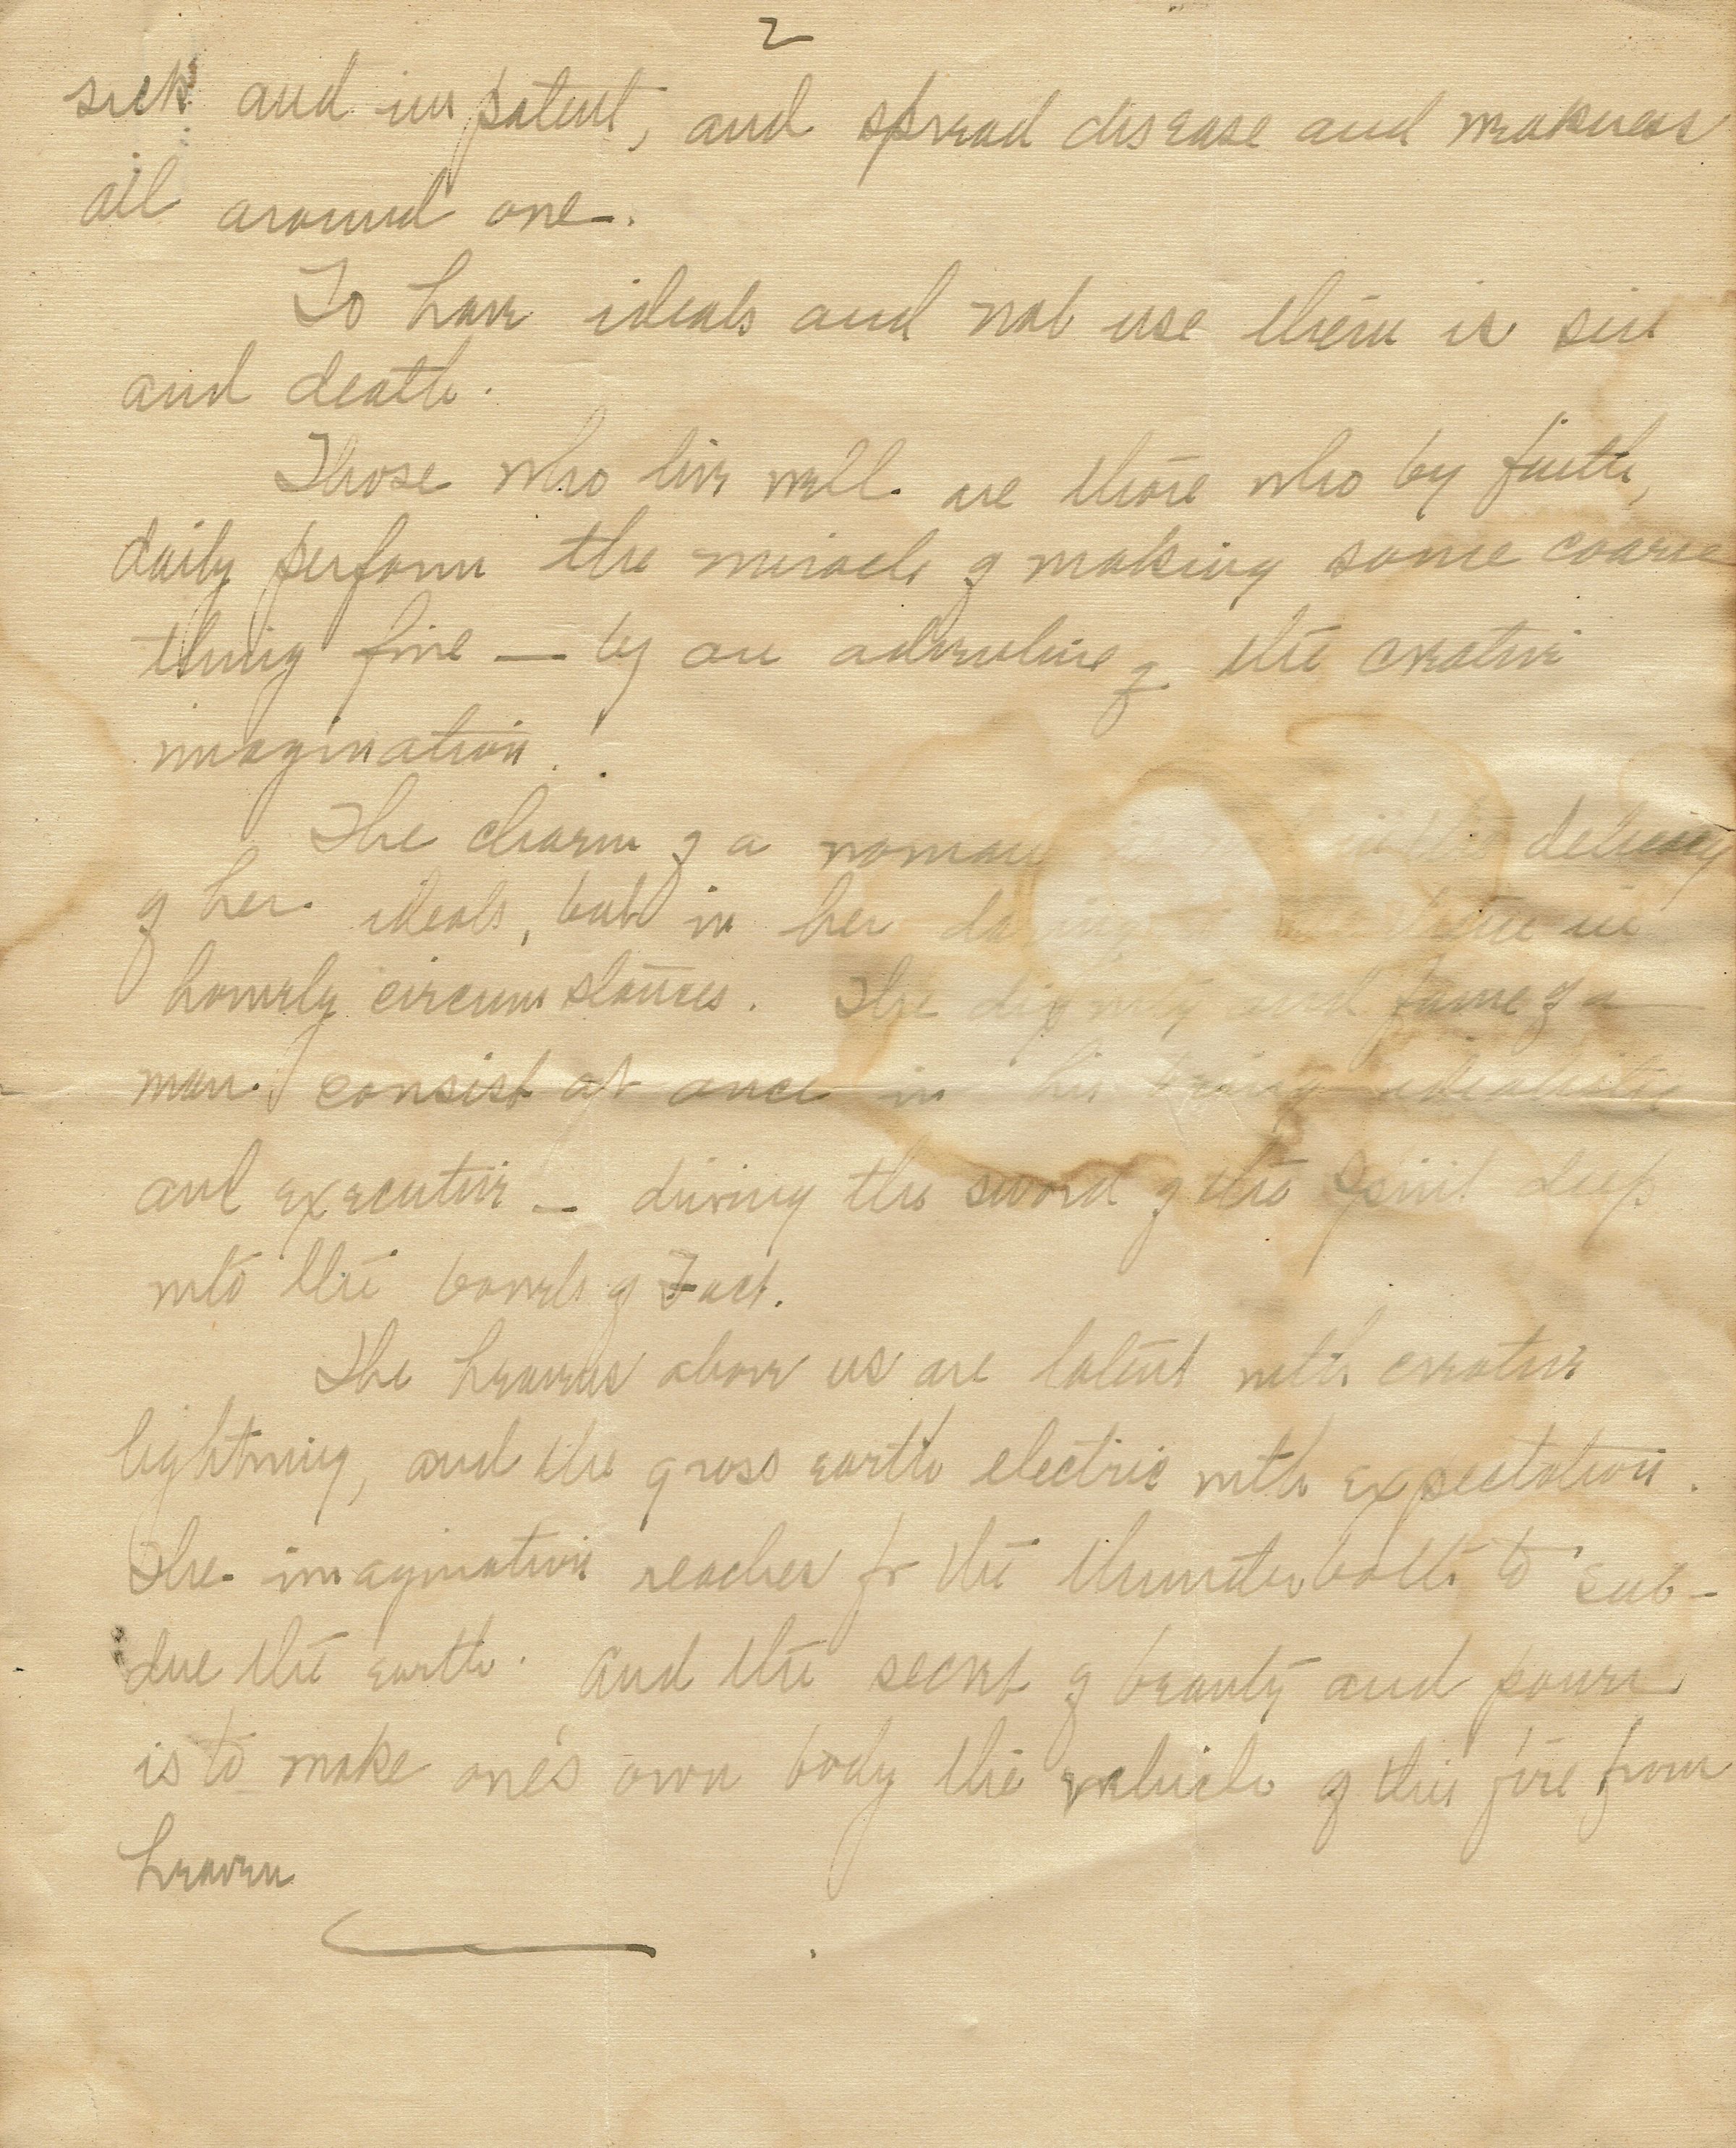 2
sick and impotent, and spread disease and weakness
all around one.
To have ideals and not use them is sin
and death.
Those who live well are those who by faith,
daily perform the miracle of making some coarse
thing fine — by an adventure of the creative
imagination.
The charm of a woman delicacy
of her ideals, but in her in
homely circumstances. The dignity and fame of a
man consist at once in his being idealistic
and executive — driving the sword of the Spirit deep
into the bowels of Fact.
The heavens above us are latent with creative
lightning, and the gross earth electric with expectation.
The imagination reaches for the thunderbolts to sub-
due the earth. And the secret of beauty and power
is to make one's own body the vehicle of this fire from
heaven